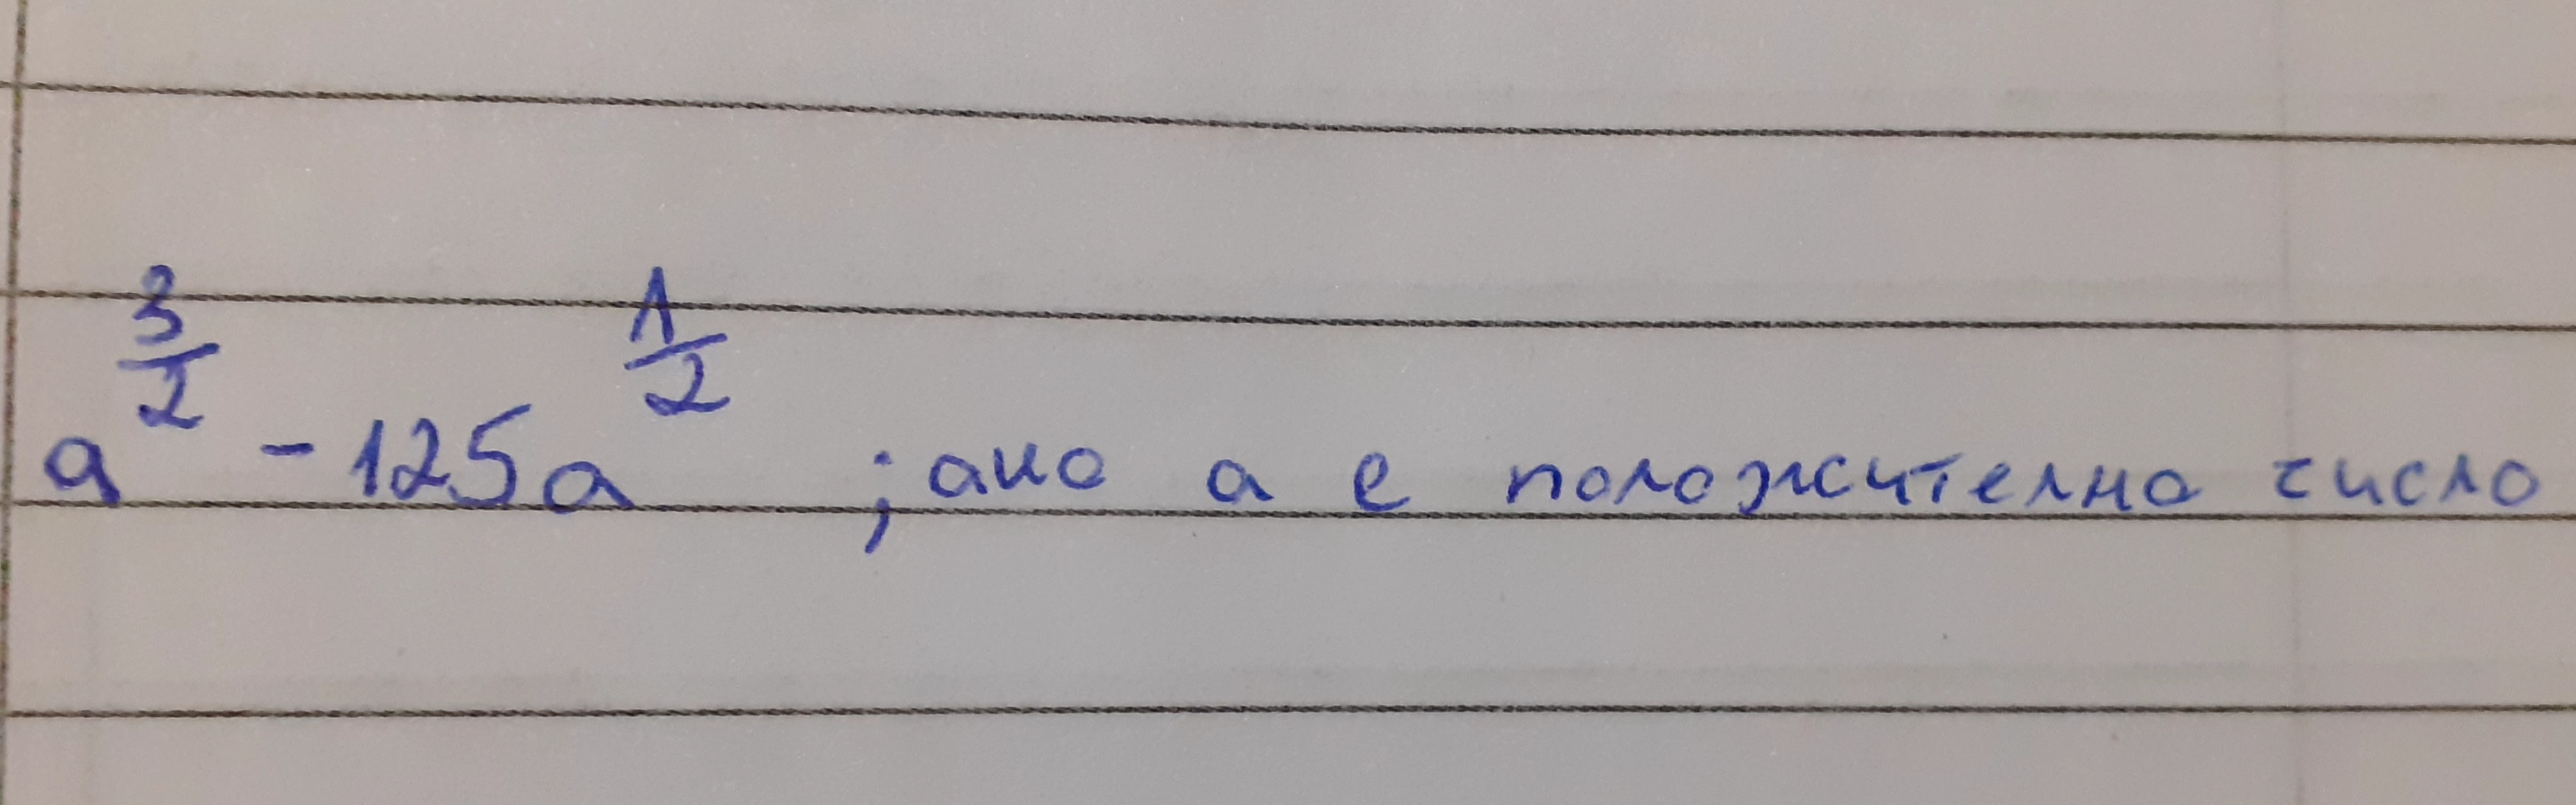 a^{\frac{3}{2}} - 125a^{\frac{1}{2}} ; ако a е положително число